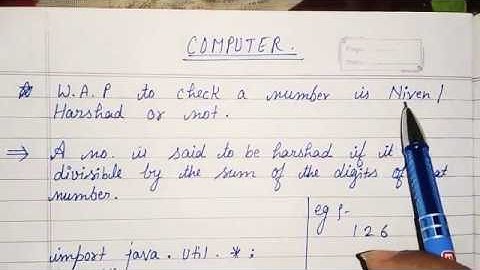 COMPUTER.
W.A.P to check a number is Niven/
Harshad or not.
⇒ A no. is said to be harshad if it
divisible by the sum of the digits of
number.
eg :-
126
import java.util.*;